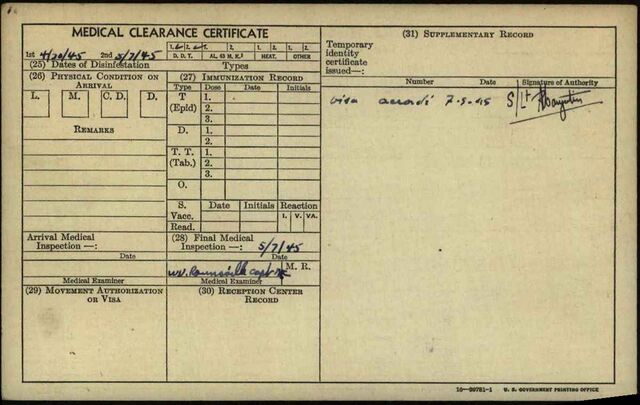 MEDICAL CLEARANCE CERTIFICATE
1st 4/30/45 2nd 5/7/45 1. 2. 1. 2. 1. 2. 1. 2.
D. D. T. AL. 63 M. K.³ HEAT. OTHER
(25) Dates of Disinfestation Types
(26) PHYSICAL CONDITION ON ARRIVAL
L. M. C. D. D.
REMARKS
Arrival Medical
Inspection —:
Date
Medical Examiner
(27) IMMUNIZATION RECORD
Type Dose Date Initials
T (Epid) 1.
2.
3.
D. 1.
2.
T. T. (Tab.) 1.
2.
3.
O.
S. Date Initials Reaction
Vacc. I. V. VA.
Read.
(28) Final Medical
Inspection —: 5/7/45
Date
Capt M. R.
Medical Examiner
(29) MOVEMENT AUTHORIZATION OR VISA
(30) RECEPTION CENTER RECORD
(31) SUPPLEMENTARY RECORD
Temporary
identity
certificate
issued—:
Number Date Signature of Authority
visa 7-5-45 S/Lt
16—39781-1 U. S. GOVERNMENT PRINTING OFFICE